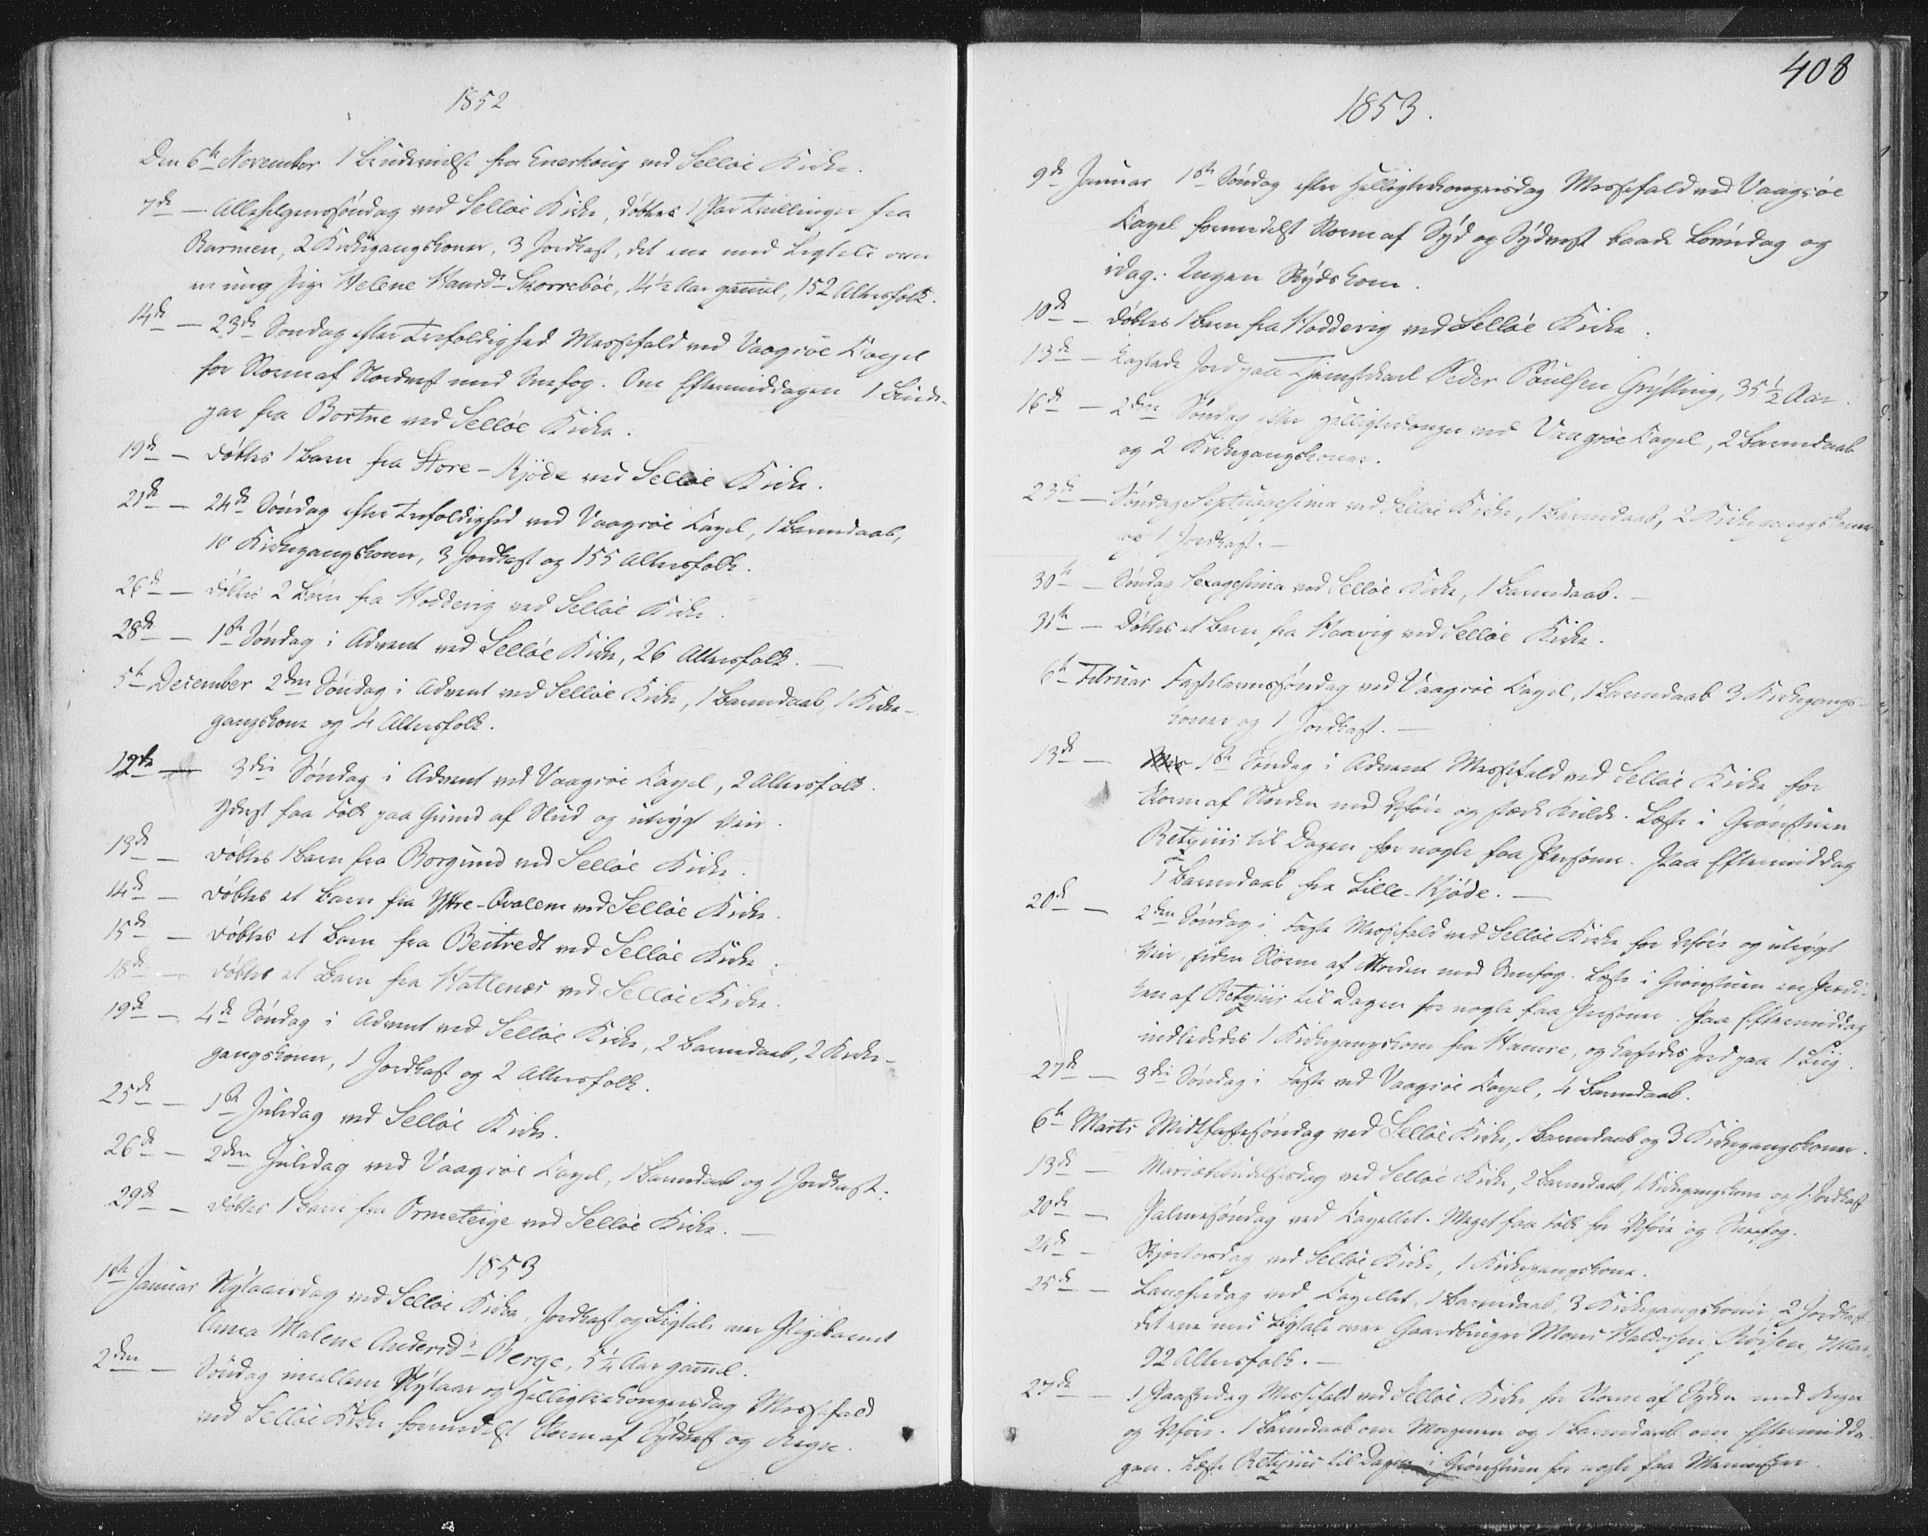 1852
Den 6te November 1 Brudevielse fra Enerhoug ved Selløe Kirke.
7de — Allehelgenssøndag ved Selløe Kirke, døbtes 1 Par Tvillinger fra
Barmen, 2 Kirkegangskoner, 3 Jordkast, det ene med Ligtale over
en ung Pige Helene Hansd. Skorrebøe, 14½ Aar gammel, 152 Altersfolk.
14de — 23de Søndag efter Trefoldighed Messefald ved Vaagsøe Capel
for Storm af Nordvest med Snefog. Om Eftermiddagen 1 Brude-
par fra Bortne ved Selløe Kirke.
19de — døbtes 1 Barn fra Store-Kjöde ved Selløe Kirke.
21de — 24de Søndag efter Trefoldighed ved Vaagsøe Capel, 1 Barnedaab,
10 Kirkegangskoner, 3 Jordkast og 155 Altersfolk.
26de — døbtes 2 Børn fra Hoddevig ved Selløe Kirke.
28de — 1ste Søndag i Advent ved Selløe Kirke, 26 Altersfolk. —
5te December 2den Søndag i Advent ved Selløe Kirke, 1 Barnedaab, 1 Kirke-
gangskone og 4 Altersfolk.
12te — 3die Søndag i Advent ved Vaagsøe Capel, 2 Altersfolk.
Yderst faa Folk paa Grund af Slud og utrygt Veir.
13de — døbtes 1 Barn fra Borgund ved Selløe Kirke.
14de — døbtes et Barn fra Yttre-Qvalem ved Selløe Kirke.
15de — døbtes et Barn fra Beitvedt ved Selløe Kirke.
18de — døbtes et Barn fra Hatlenæs ved Selløe Kirke.
19de — 4de Søndag i Advent ved Selløe Kirke, 2 Barnedaab, 2 Kirke-
gangskoner, 1 Jordkast og 2 Altersfolk.
25de — 1ste Juledag ved Selløe Kirke.
26de — 2den Juledag ved Vaagsøe Capel, 1 Barnedaab og 1 Jordkast.
29de — døbtes 1 Barn fra Ormeteige ved Selløe Kirke. —
1853
1ste Januar Nytaarsdag ved Selløe Kirke, Jordkast og Ligtale over Pigebarnet
Anna Malene Andersd. Berge, 5¼ Aar gammel.
2den — Søndag imellem Nytaar og Helligtrekongersdag Messefald
ved Selløe Kirke formedelst Storm af Sydvest og Regn.
408
1853.
9de Januar 1ste Søndag efter Helligtrekongersdag Messefald ved Vaagsøe
Capel formedelst Storm af Syd og Sydvest baade Løverdag og
idag. Ingen Skyds kom.
10de — døbtes 1 Barn fra Hoddevig ved Selløe Kirke.
13de — kastede Jord paa Tjenestekarl Peder Paulsen Gryttting, 35½ Aar.
16de — 2den Søndag efter Helligtrekonger ved Vaagsøe Capel, 2 Barnedaab
og 2 Kirkegangskoner.
23de — Søndag Septuagesima ved Selløe Kirke, 1 Barnedaab, 2 Kirkegangskoner
og 1 Jordkast. —
30te — Søndag Sexagesima ved Selløe Kirke, 1 Barnedaab. —
31te — Døbtes et Barn fra Haavig ved Selløe Kirke.
6te Februar Fastelavnssøndag ved Vaagsøe Capel, 1 Barnedaab 3 Kirkegangs-
koner og 1 Jordkast. —
13de — 1ste Søndag i Advent Messefald ved Selløe Kirke for
Storm af Norden med Uføre og stærk Kulde. Læste i Grønstuen
Retzius til Dagen for nogle faa Personer. Paa Eftermiddag
1 Barnedaab fra Lille-Kjøde. —
20de — 2den Søndag i Faste Messefald ved Selløe Kirke for Uføre og utrygt
Veir, siden Storm af Norden med Snefog. Læste i Grønstuen en Prædi-
ken af Retzius til Dagen for nogle faa Personer. Paa Eftermiddag
indlededes 1 Kirkegangskone fra Hamre, og kastedes Jord paa 1 Liig.
27de — 3die Søndag i Faste ved Vaagsøe Capel, 4 Barnedaab.
6te Marts Midtfastesøndag ved Selløe Kirke, 1 Barnedaab og 3 Kirkegangskoner.
13de — Mariæbebudelsesdag ved Selløe Kirke, 2 Barnedaab, 1 Kirkegangskone og 1 Jordkast
20de — Palmesøndag ved Capellet. Meget faa Folk for Uføre og Snefog.
24de — Skjærtorsdag ved Selløe Kirke, 1 Kirkegangskone.
25de — Langfredag ved Capellet, 1 Barnedaab, 3 Kirkegangskoner 2 Jordkast
det ene med Ligtale over Gaardbruger Mons
92 Altersfolk. —
27de — 1 Paaskedag Messefald ved Selløe Kirke for Storm af Syden med Regn
og Uføre. 1 Barnedaab om Morgenen og 1 Barnedaab om Eftermidda-
gen. Læste Retzius til Dagen i Grønstuen for nogle faa Mennesker.